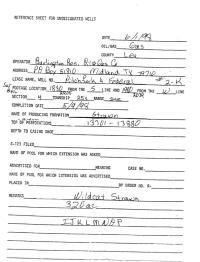 REFERENCE SHEET FOR UNDESIGNATED WELLS
DATE 6/1/98
OIL/GAS Gas
COUNTY Lea
OPERATOR Burlington Res. Oil & Gas Co
ADDRESS PO Box 51810 Midland TX 79710
LEASE NAME, WELL NO. Pitchfork Federal # 2-K
FOOTAGE LOCATION 1830 FROM THE S LINE AND 1980 FROM THE W LINE
SECTION 4 TOWNSHIP 25s RANGE 34E
COMPLETION DATE 5/9/98
NAME OF PRODUCING FORMATION Strawn
TOP OF PERFORATIONS 13701 - 13880
DEPTH TO CASING SHOE
C-123 FILED
NAME OF POOL FOR WHICH EXTENSION WAS ASKED
ADVERTISED FOR HEARING CASE NO.
NAME OF POOL FOR WHICH EXTENSION WAS ADVERTISED
PLACED IN BY ORDER NO. R-
REMARKS Wildcat Strawn
320 ac.
IJKLMNOP